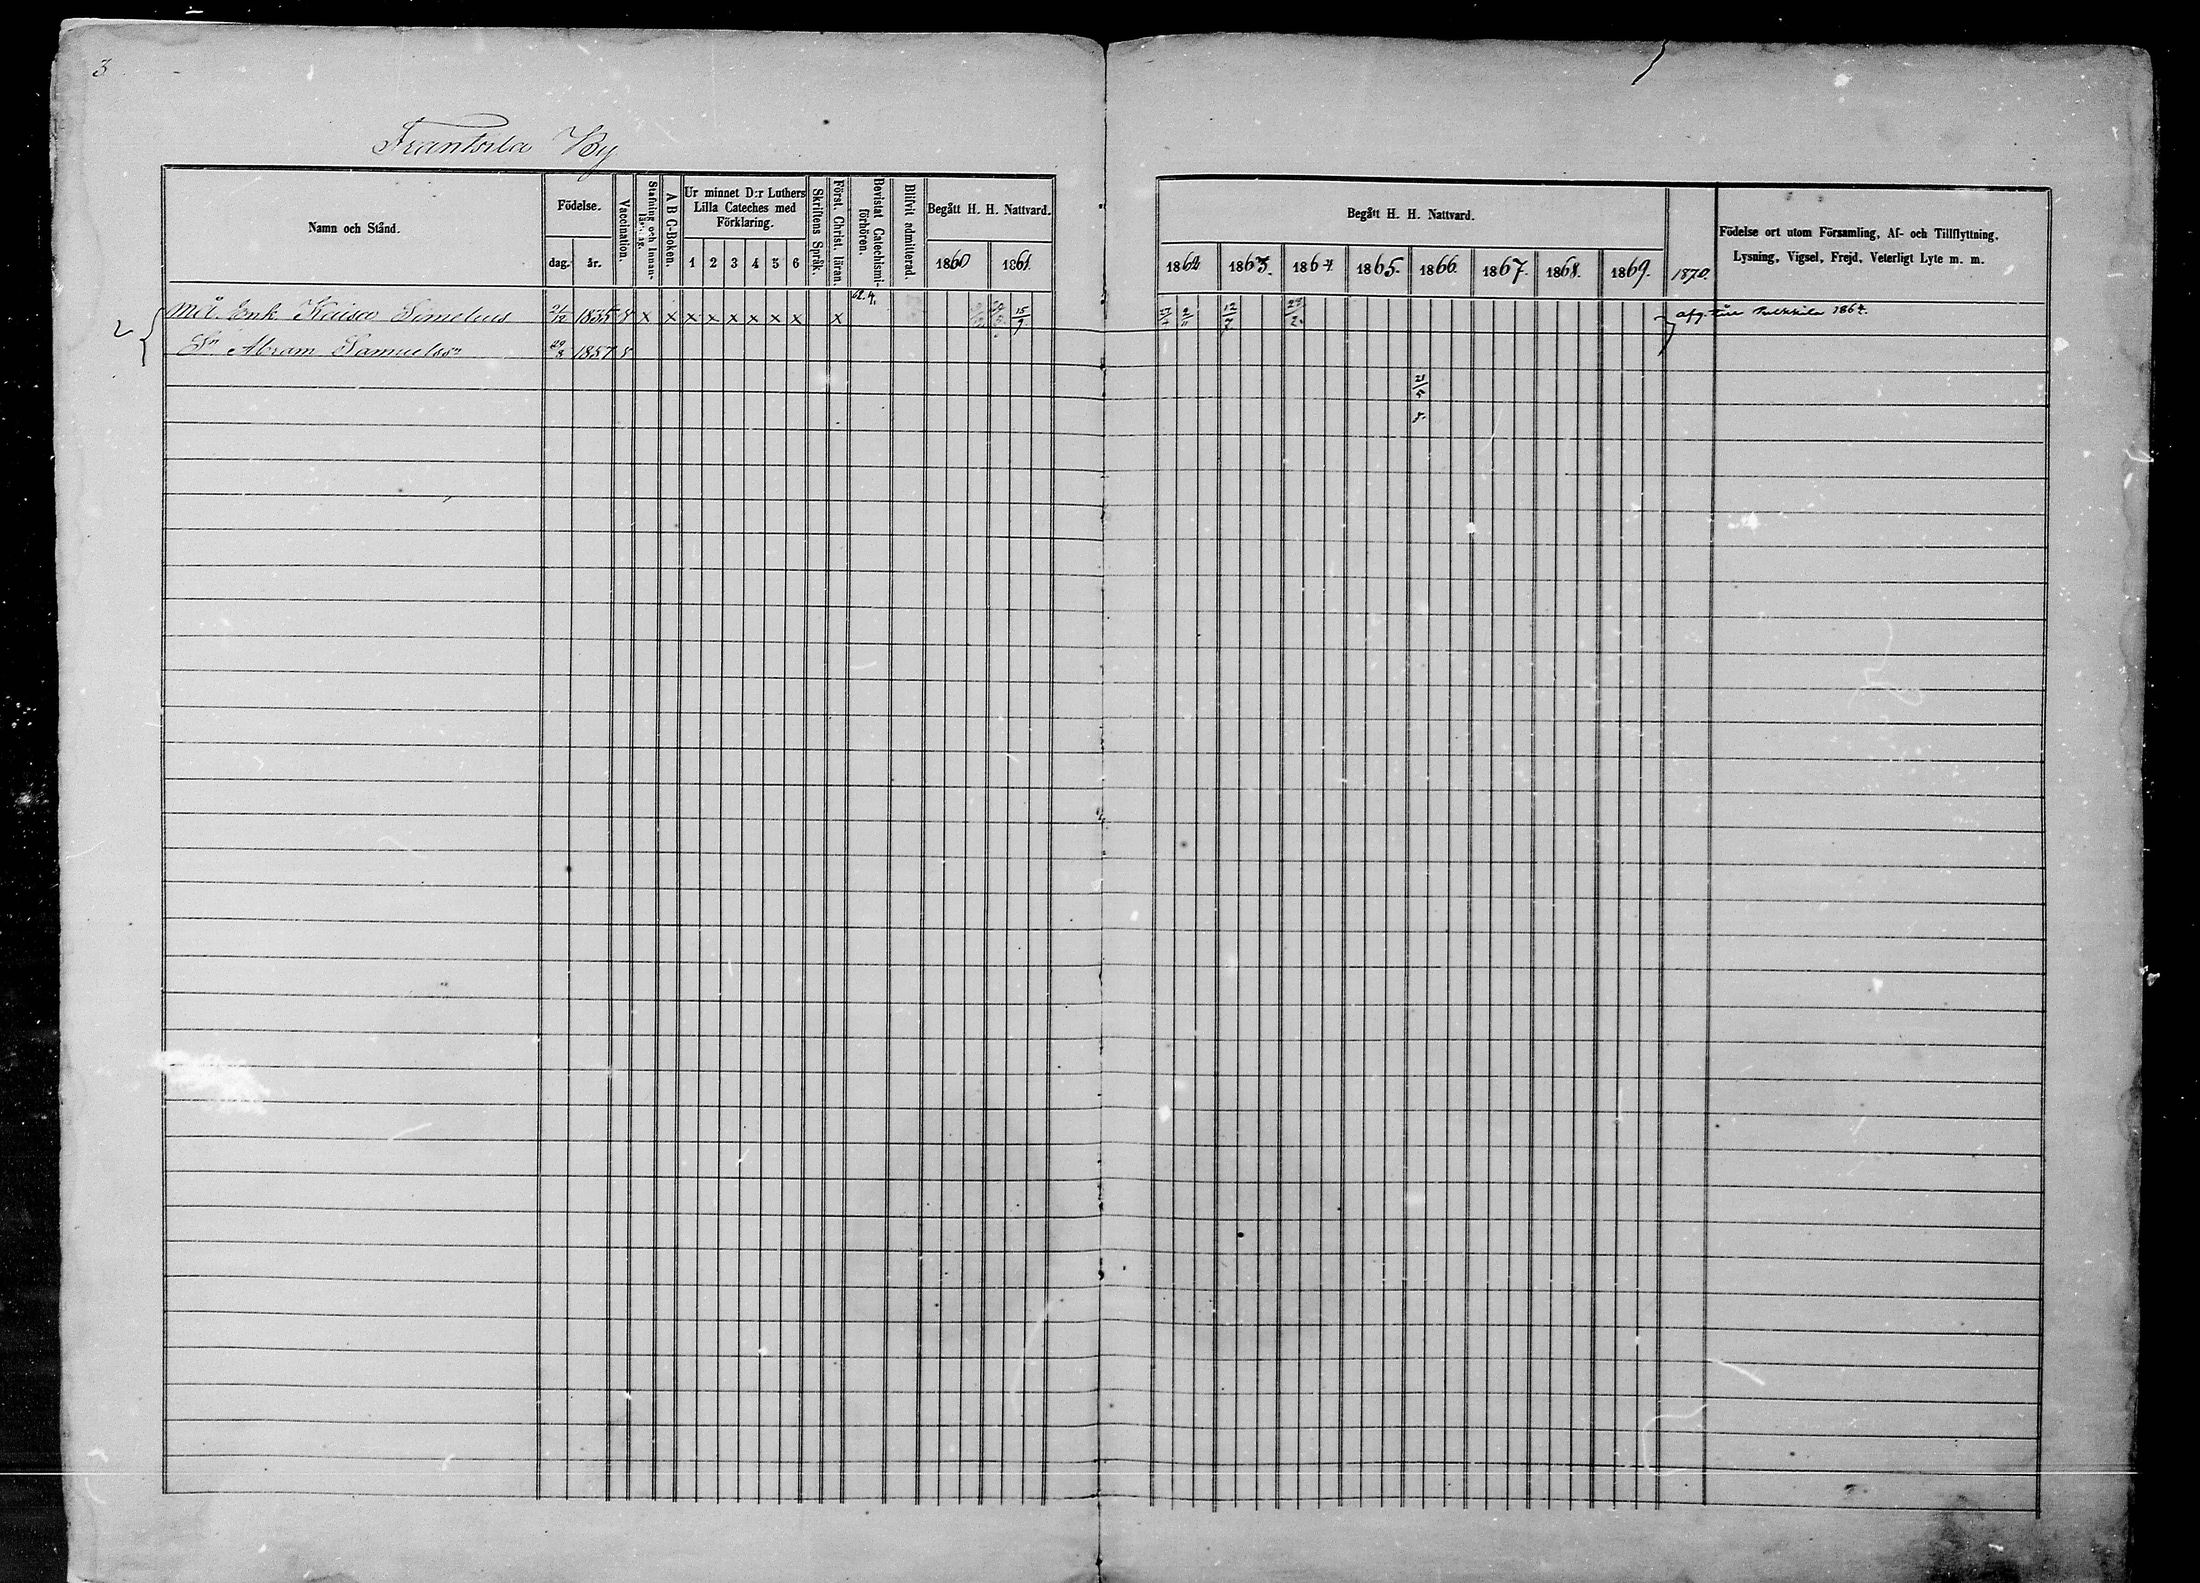 3
Frantsila By
Namn och Stånd.
Födelse.
dag. år.
Vaccination.
Stafning och Innan-
A B C-Boken.
Ur minnet D:r Luthers
Lilla Cateches med
Förklaring.
1 2 3 4 5 6
Skriftens Språk.
Först. Christ. läran.
Bevistat Catechismi-
förhören.
Blifvit admitterad.
Begått H. H. Nattvard.
1860 1861.
Begått H. H. Nattvard.
1862 1863. 1864 1865. 1866. 1867. 1868. 1869. 1870.
Födelse ort utom Församling, Af- och Tillflyttning,
Lysning, Vigsel, Frejd, Veterligt Lyte m. m.
62.4.
Enk Kaisa Simelius 21/12 1835 x x x x x x x x x 15/9 27/4 2/11 12/7 afg. Pulkkila 1864.
Sn Abram Samuelssn 29/8 1857
21/5